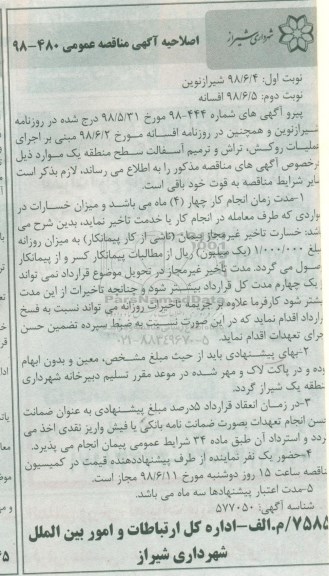 شهرداری شیراز
اصلاحیه آگهی مناقصه عمومی ۴۸۰-۹۸
نوبت اول: ۹۸/۶/۴ شیرازنوین
نوبت دوم: ۹۸/۶/۵ افسانه
پیرو آگهی های شماره ۴۴۴-۹۸ مورخ ۹۸/۵/۳۱ درج شده در روزنامه
شیرازنوین و همچنین در روزنامه افسانه مورخ ۹۸/۶/۲ مبنی بر اجرای
عملیات روکش، تراش و ترمیم آسفالت سطح منطقه یک موارد ذیل
درخصوص آگهی های مناقصه مذکور را به اطلاع می رساند، لازم بذکر است
سایر شرایط مناقصه به قوت خود باقی است.
۱-مدت زمان انجام کار چهار (۴) ماه می باشد و میزان خسارات در
مواردی که طرف معامله در انجام کار یا خدمت تاخیر نماید، بدین شرح می
باشد: خسارت تاخیر غیرمجاز پیمان (ناشی از کار پیمانکار) به میزان روزانه
مبلغ ۱/۰۰۰/۰۰۰ (یک میلیون) ریال از مطالبات پیمانکار کسر و از پیمانکار
وصول می گردد. مدت تاخیر غیرمجاز در تحویل موضوع قرارداد نمی تواند
از یک چهارم مدت کل قرارداد بیشتر شود و چنانچه تاخیرات از این مدت
بیشتر شود کارفرما علاوه بر جریمه تاخیرات روزانه می تواند نسبت به فسخ
قرارداد اقدام نماید که در این صورت نسبت به ضبط سپرده تضمین حسن
اجرای تعهدات اقدام نماید.
۲-بهای پیشنهادی باید از حیث مبلغ مشخص، معین و بدون ابهام
بوده و در پاکت لاک و مهر شده در موعد مقرر تسلیم دبیرخانه شهرداری
منطقه یک شیراز گردد.
۳-در زمان انعقاد قرارداد ۵درصد مبلغ پیشنهادی به عنوان ضمانت
حسن انجام تعهدات بصورت ضمانت نامه بانکی یا فیش واریز نقدی اخذ می
گردد و استرداد آن طبق ماده ۳۴ شرایط عمومی پیمان انجام می پذیرد.
۴-حضور یک نفر نماینده از طرف پیشنهاددهنده قیمت در کمیسیون
مناقصه ساعت ۱۵ روز دوشنبه مورخ ۹۸/۶/۱۱ مجاز است.
۵-مدت اعتبار پیشنهادها سه ماه می باشد.
شناسه آگهی: ۵۷۷۰۵۰
۷۵۸۵/م.الف-اداره کل ارتباطات و امور بین الملل
شهرداری شیراز